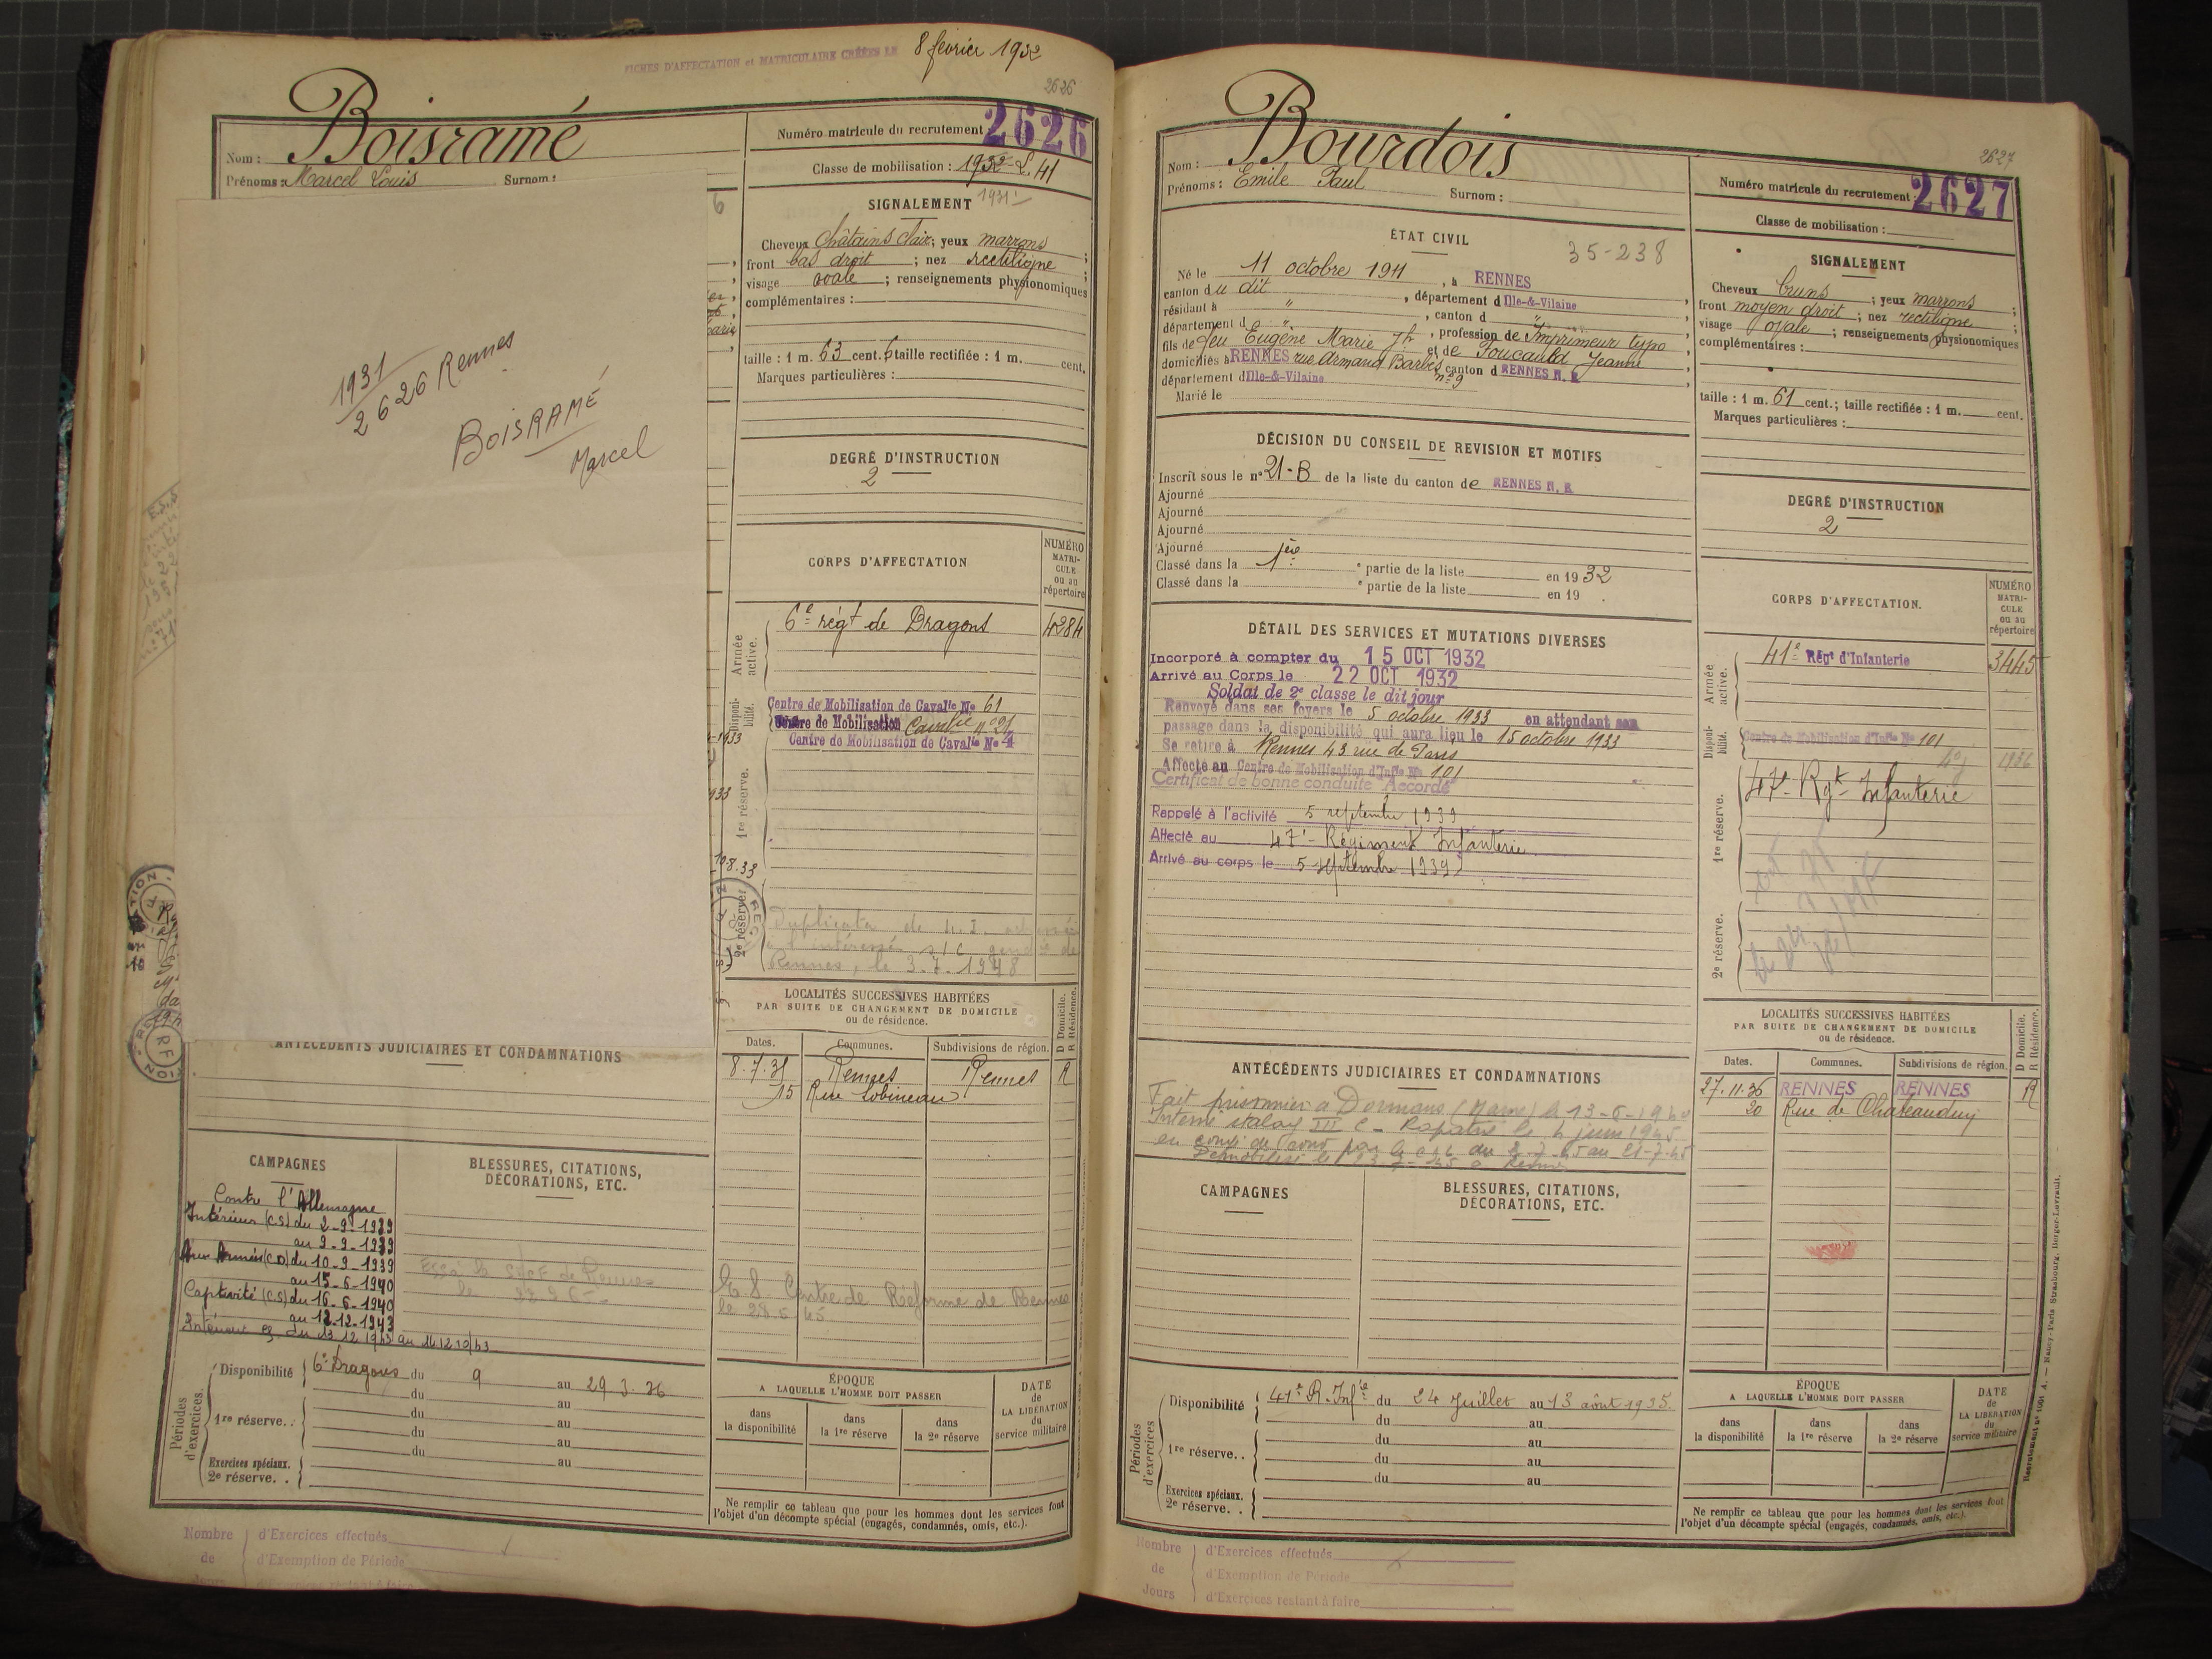 FICHES D'AFFECTATION et MATRICULAIRE CRÉÉES LE 8 février 1932
2626
Nom : Boisramé
Prénoms : Marcel Louis Surnom :
Numéro matricule du recrutement 2626
Classe de mobilisation : 1932
1931
SIGNALEMENT
Cheveux châtains clair ; yeux marrons ;
front bas droit ; nez rectiligne ;
visage ovale ; renseignements physionomiques
complémentaires :
taille : 1 m. 63 cent. 6 taille rectifiée : 1 m. cent.
Marques particulières :
DEGRÉ D'INSTRUCTION
2
1931
2626 Rennes
BOISRAMÉ
Marcel
CORPS D'AFFECTATION
NUMÉRO
MATRI-
CULE
ou au
répertoire
Armée
active.
6e régt de Dragons 4284
Disponi-
bilité.
Centre de Mobilisation de Cavalie No 61
Centre de Mobilisation Cavalie n° 21
Centre de Mobilisation de Cavalie No 4
1re réserve.
2e réserve.
Duplicata de
Rennes, le 3.7.1948
LOCALITÉS SUCCESSIVES HABITÉES
PAR SUITE DE CHANGEMENT DE DOMICILE
ou de résidence.
D Domicile.
R Résidence.
Dates. Communes. Subdivisions de région.
8.7.31 Rennes Rennes R
15 Rue Lobineau
Centre de Réforme de Rennes
ANTÉCÉDENTS JUDICIAIRES ET CONDAMNATIONS
CAMPAGNES
BLESSURES, CITATIONS,
DÉCORATIONS, ETC.
Contre l'Allemagne
Intérieur (CS) du 2-9-1939
au 9-9-1939
Aux Armées (CD) du 10-9-1939
au 15-6-1940
Captivité (CS) du 16-6-1940
au 12-12-1943
Intérieur CS du 13 12 1943 au 16 12 1943
Périodes
d'exercices.
Disponibilité 6e Dragons du 9 au 29.3.36
du au
1re réserve. . du au
du au
du au
Exercices spéciaux.
2e réserve. .
ÉPOQUE
A LAQUELLE L'HOMME DOIT PASSER
DATE
de
LA LIBÉRATION
du
service militaire
dans
la disponibilité
dans
la 1re réserve
dans
la 2e réserve
Ne remplir ce tableau que pour les hommes dont les services font
l'objet d'un décompte spécial (engagés, condamnés, omis, etc.).
Nombre
de
Jours
d'Exercices effectués
d'Exemption de Période
d'Exercices restant à faire
2627
Nom : Bourdois
Prénoms : Emile Paul Surnom :
Numéro matricule du recrutement 2627
Classe de mobilisation :
ÉTAT CIVIL
35-238
Né le 11 octobre 1911, à RENNES
canton du dit, département d'Ille-&-Vilaine,
résidant à ", canton d
département d ", profession de Imprimeur typo,
fils de feu Eugène Marie Jh et de Foucauld Jeanne,
domiciliés à RENNES rue Armand Barbès n° 9 canton d RENNES N. E.
département d'Ille-&-Vilaine
Marié le
SIGNALEMENT
Cheveux bruns ; yeux marrons ;
front moyen droit ; nez rectiligne ;
visage ovale ; renseignements physionomiques
complémentaires :
taille : 1 m. 61 cent.; taille rectifiée : 1 m. cent.
Marques particulières :
DÉCISION DU CONSEIL DE REVISION ET MOTIFS
Inscrit sous le n° 21-B de la liste du canton de RENNES N. E.
Ajourné
Ajourné
Ajourné
Ajourné
Classé dans la 1ère partie de la liste en 1932
Classé dans la e partie de la liste en 19 .
DEGRÉ D'INSTRUCTION
2
DÉTAIL DES SERVICES ET MUTATIONS DIVERSES
Incorporé à compter du 15 OCT 1932
Arrivé au Corps le 22 OCT 1932
Soldat de 2e classe le dit jour
Renvoyé dans ses foyers le 5 octobre 1933 en attendant son
passage dans la disponibilité qui aura lieu le 15 octobre 1933
Se retire à Rennes 43 rue de Paris
Affecté au Centre de Mobilisation d'Infie No 101
Certificat de bonne conduite Accordé
Rappelé à l'activité 5 septembre 1939
Affecté au 47e Régiment Infanterie
Arrivé au corps le 5 septembre 1939
CORPS D'AFFECTATION.
NUMÉRO
MATRI-
CULE
ou au
répertoire
Armée
active.
41e Régt d'Infanterie 3445
Disponi-
bilité.
Centre de Mobilisation d'Infie No 101
1936
47e Rgt Infanterie
1re réserve.
2e réserve.
LOCALITÉS SUCCESSIVES HABITÉES
PAR SUITE DE CHANGEMENT DE DOMICILE
ou de résidence.
D Domicile.
R Résidence.
Dates. Communes. Subdivisions de région.
27.11.36 RENNES RENNES R
20 Rue de Chateaudun
ANTÉCÉDENTS JUDICIAIRES ET CONDAMNATIONS
Fait prisonnier à Dormans (Marne) le 13-6-1940
Interné stalag III C - Rapatrié le 4 juin 1945
en congé de
Démobilisé le
CAMPAGNES
BLESSURES, CITATIONS,
DÉCORATIONS, ETC.
Périodes
d'exercices
Disponibilité 41e R. Infie du 24 Juillet au 13 août 1935.
du au
1re réserve. . du au
du au
du au
Exercices spéciaux.
2e réserve. .
ÉPOQUE
A LAQUELLE L'HOMME DOIT PASSER
DATE
de
LA LIBÉRATION
du
service militaire
dans
la disponibilité
dans
la 1re réserve
dans
la 2e réserve
Ne remplir ce tableau que pour les hommes dont les services font
l'objet d'un décompte spécial (engagés, condamnés, omis, etc.).
Nombre
de
Jours
d'Exercices effectués
d'Exemption de Période
d'Exercices restant à faire
Nancy-Paris-Strasbourg, Berger-Levrault.